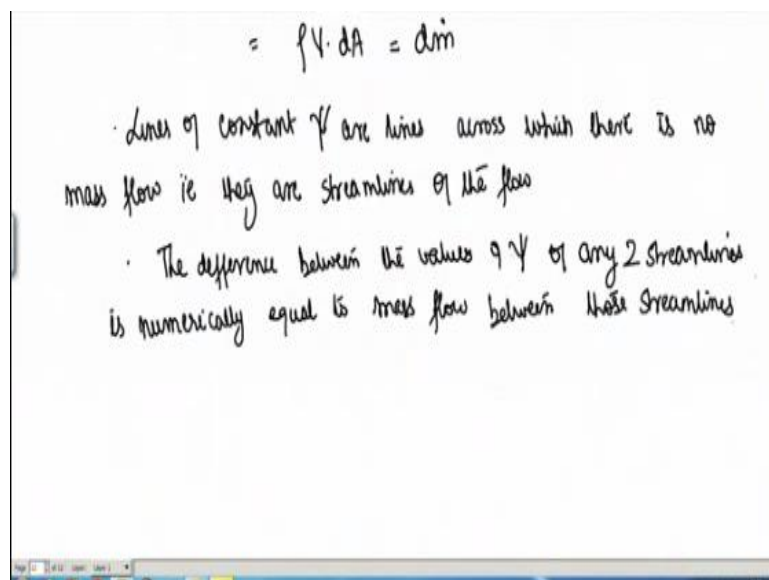 = ρV·dA = dṁ
· Lines of constant ψ are lines across which there is no
mass flow ie they are streamlines of the flow
· The difference between the values of ψ of any 2 streamlines
is numerically equal to mass flow between those streamlines